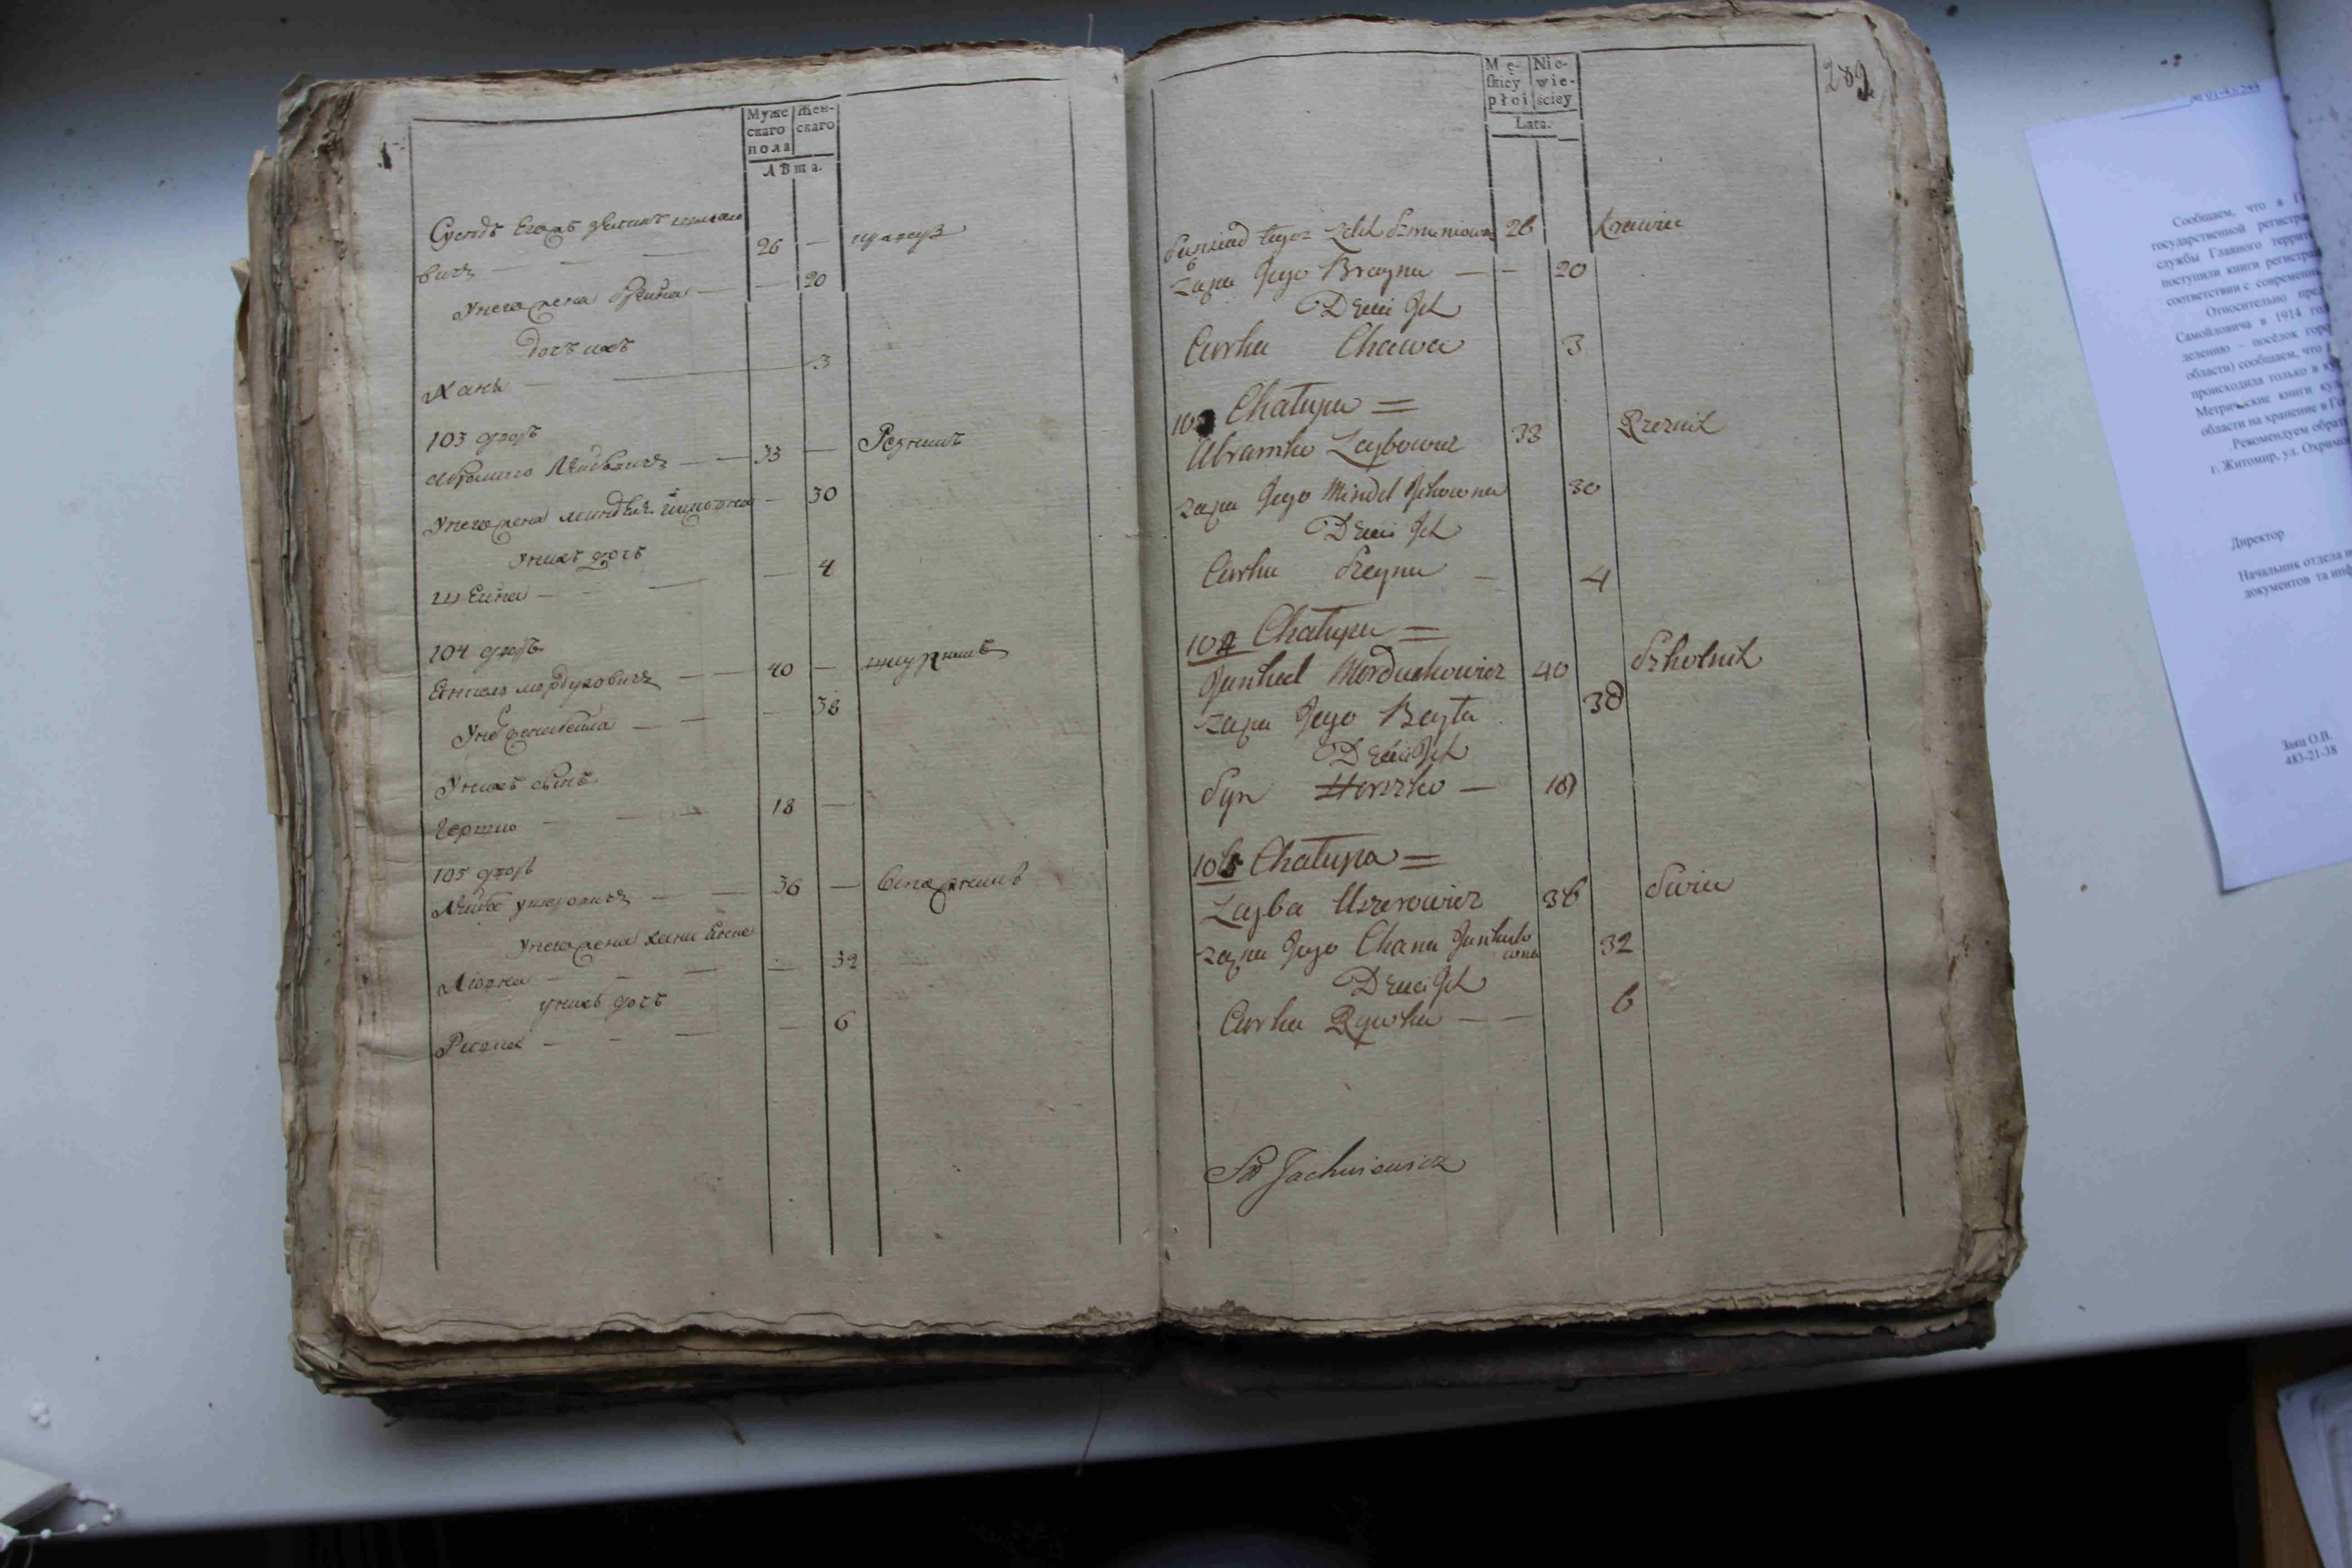 Муже
скаго
пола
Жен-
скаго
Лѣта.
26 —
вичъ — — —
Унего жена Брейна — — 20
дочъ ихъ
Хана — 3
103 дворъ
Абрамко Лейбовичъ — — 33 — Резникъ
Унего жена миндля — 30
Унихъ дочъ
шейна — — — — 4
104 дворъ
Янкель мордуховичъ — — 40 —
— — — 38
Унихъ сынъ
Гершко — — — 18 —
105 дворъ
Лейба ушеровичъ — — 36 —
Унего жена хана Янке
лювна — — — — 32
унихъ дочъ
Ривка — — — — 6
Mę-
skiey
płci
Nie-
wie-
ściey
Lata.
282
Sąsiad tegoz Zelik 26 Krawiec
żona Jego Brayna — — 20
Dzieci Ich
Curka Chawa 3
103 Chałupa =
Abramko Leybowicz 33 Rzeznik
żona Jego Mindel Ickowna 30
Dzieci Ich
Curka Szeyna — 4
104 Chałupa =
Jankiel Morduchowicz 40 Szkolnik
żona Jego Beyła 38
Dzieci Ich
Syn Herszko — 18
105 Chałupa =
Leyba Uszerowicz 36
żona Jego Chana Jankielo
wna 32
Dzieci Ich
Curka Rywka — — 6
Jachniewicz
Сообщаем, что в
государственной регистра
службы Главного террит
поступили книги регистра
соответствии с современн
Относительно пре
Самойловича в 1914 го
делению – посёлок горо
области) сообщаем, что
происходила только в
Метрические книги ку
области на хранение в Го
Рекомендуем обрат
г. Житомир, ул. Охрим
Директор
Начальник отдела
документов та инф
Заяц О.В.
483-21-38